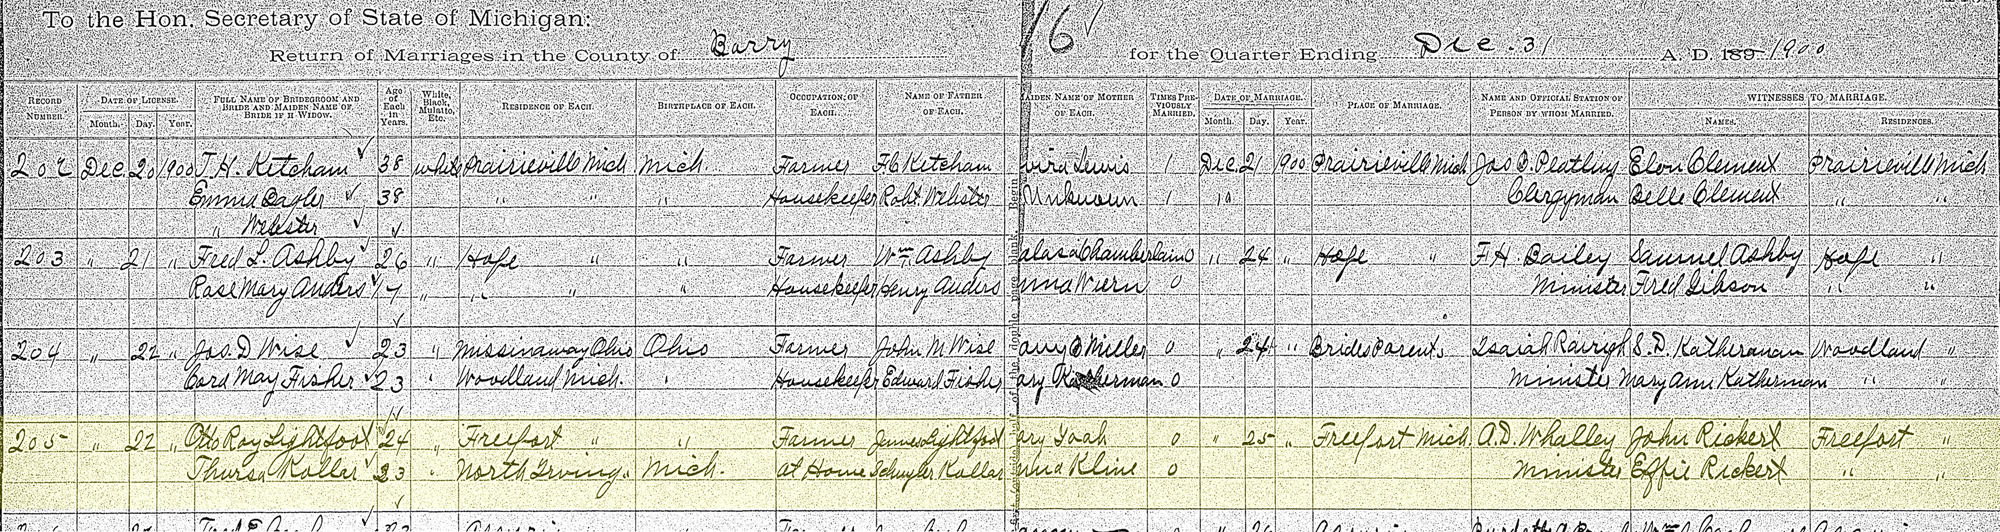 To the Hon. Secretary of State of Michigan:
Return of Marriages in the County of Barry for the Quarter Ending Dec. 31 A. D. 189 1900
16 ✓
Record Number. Date of License. Month. Day. Year. Full Name of Bridegroom and Bride and Maiden Name of Bride if a Widow. Age of Each in Years. White, Black, Mulatto, Etc. Residence of Each. Birthplace of Each. Occupation of Each. Name of Father of Each. Maiden Name of Mother of Each. Times Previously Married. Date of Marriage. Month. Day. Year. Place of Marriage. Name and Official Station of Person by Whom Married. Witnesses to Marriage. Names. Residences.
202 Dec. 20 1900 J. H. Ketcham 38 white Prairieville Mich Mich. Farmer F C Ketcham Lewis 1 Dec. 21 1900 Prairieville Mich Jas Elon Clement Prairieville Mich
Emma Bagler 38 " " " Housekeeper Robt. Webster Unknown 1 Clergyman Belle Clement " "
" Webster
203 " 21 " Fred L. Ashby 26 " Hope " " Farmer Wm Ashby alasa Chamberlain 0 " 24 " Hope " F H Bailey Samuel Ashby Hope "
Rose Mary Anders 17 " " " " Housekeeper Henry Anders nna Wiern 0 Minister Fred Gibson " "
204 " 22 " Jas. D Wise 23 " Ohio Ohio Farmer John M Wise ary E Miller 0 " 24 " Brides Parents Isaiah Rairigh S. D. Katherman Woodland "
Cora May Fisher 23 " Woodland Mich. " Housekeeper Edward Fisher ary Katherman 0 Minister Mary Ann Katherman " "
205 " 22 " Otto Ray Lightfoot 24 " Freeport " " Farmer James Lightfoot ary Yoah 0 " 25 " Freeport Mich. A. D. Whalley John Rickert Freeport "
Thursa Kollar 23 " North Irving " Mich. At Home Schuyler Kollar nna Kline 0 Minister Effie Rickert " "